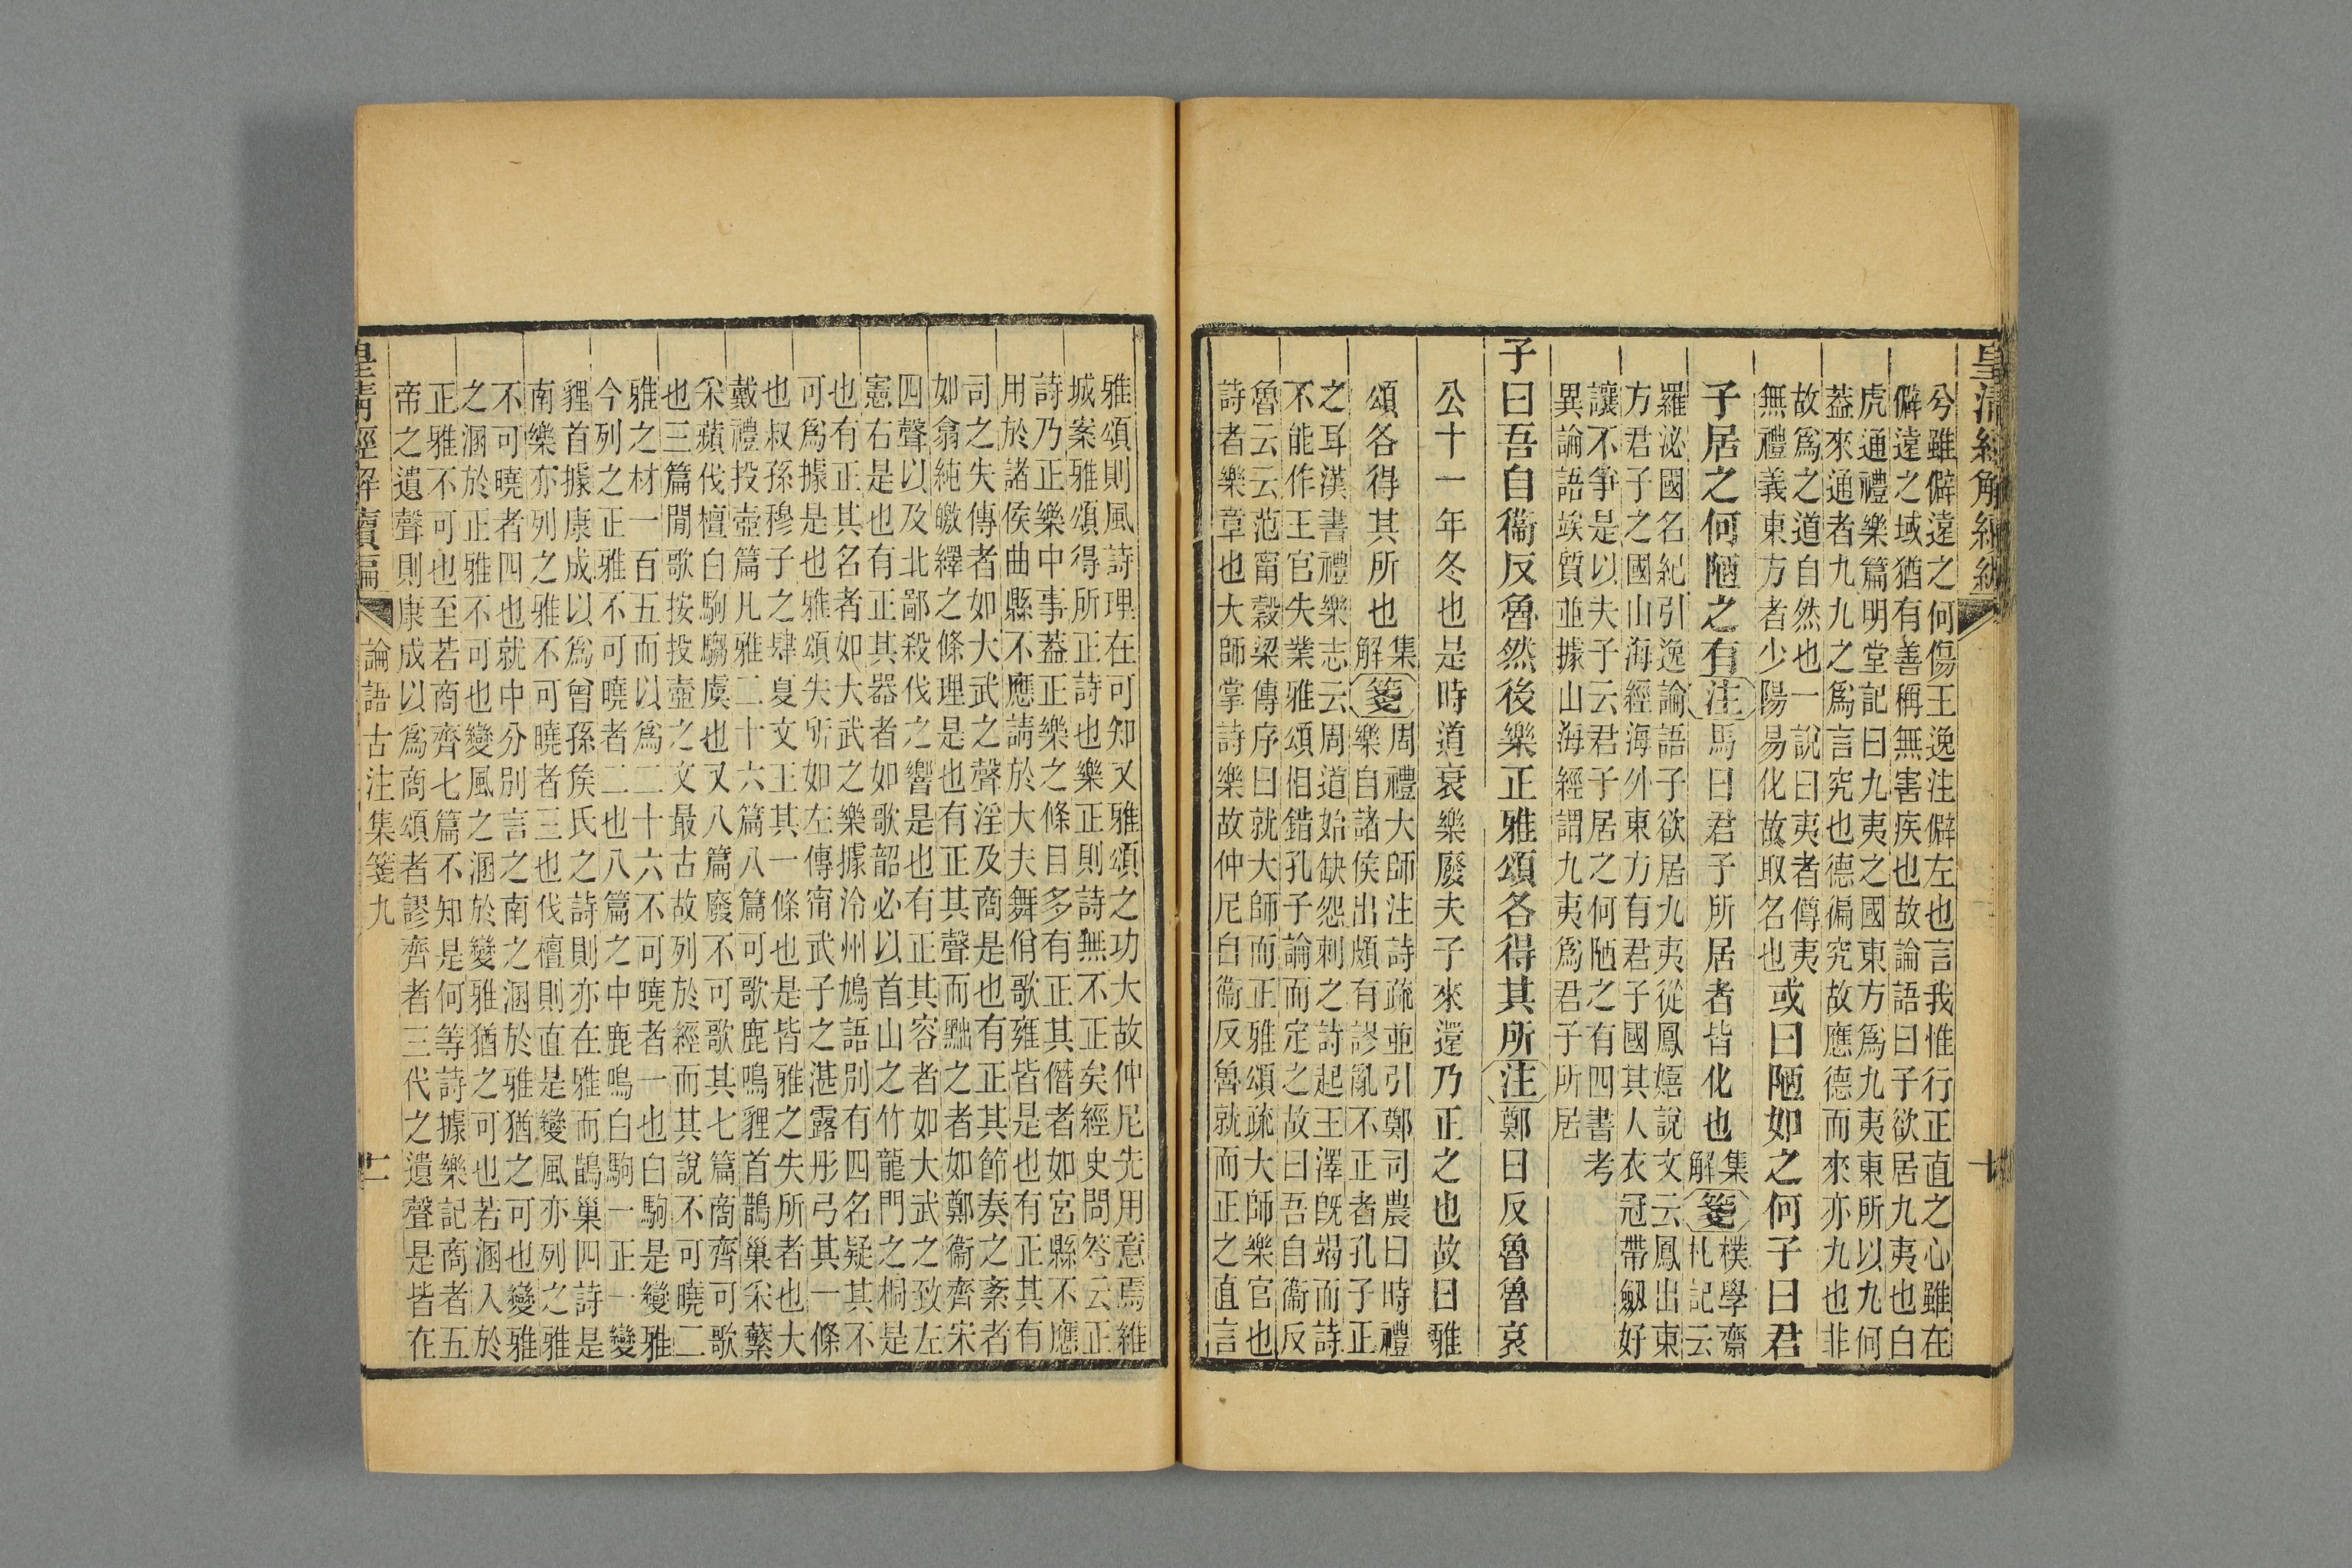 皇清經解續編
十
兮雖僻遠之何傷王逸注僻左也言我惟行正直之心雖在
僻遠之域猶有善稱無害疾也故論語曰子欲居九夷也白
虎通禮樂篇明堂記曰九夷之國東方爲九夷東所以九何
蓋來通者九九之爲言究也德徧究故應德而來亦九也非
故爲之道自然也一說曰夷者僔夷
無禮義東方者少陽易化故取名也
或曰陋如之何子曰君
子居之何陋之有注馬曰君子所居者皆化也集解箋樸學齋
札記云
羅泌國名紀引逸論語子欲居九夷從鳳嬉說文云鳳出東
方君子之國山海經海外東方有君子國其人衣冠帶劔好
讓不爭是以夫子云君子居之何陋之有四書考
異論語竢質並據山海經謂九夷爲君子所居
子曰吾自衞反魯然後樂正雅頌各得其所注鄭曰反魯魯哀
公十一年冬也是時道衰樂廢夫子來還乃正之也故曰雅
頌各得其所也集解箋周禮大師注詩疏並引鄭司農曰時禮
樂自諸侯出頗有謬亂不正者孔子正
之耳漢書禮樂志云周道始缺怨刺之詩起王澤旣竭而詩
不能作王官失業雅頌相錯孔子論而定之故曰吾自衞反
魯云云范甯穀梁傳序曰就大師而正雅頌疏大師樂官也
詩者樂章也大師掌詩樂故仲尼自衞反魯就而正之直言
雅頌則風詩理在可知又雅頌之功大故仲尼先用意焉維
城案雅頌得所正詩也樂正則詩無不正矣經史問答云正
詩乃正樂中事蓋正樂之條目多有正其僭者如宮縣不應
用於諸侯曲縣不應請於大夫舞佾歌雍皆是也有正其有
司之失傳者如大武之聲淫及商是也有正其節奏之紊者
如翕純皦繹之條理是也有正其聲而黜之者如鄭衞齊宋
四聲以及北鄙殺伐之響是也有正其容者如大武之致左
憲右是也有正其器者如歌韶必以首山之竹龍門之桐是
也有正其名者如大武之樂據泠州鳩語別有四名疑其不
可爲據是也雅頌失所如左傳甯武子之湛露彤弓其一條
也叔孫穆子之肆夏文王其一條也是皆雅之失所者也大
戴禮投壺篇凡雅二十六篇八篇可歌鹿鳴貍首鵲巢采蘩
采蘋伐檀白駒騶虞也又八篇廢不可歌其七篇商齊可歌
也三篇閒歌按投壺之文最古故列於經而其說不可曉二
雅之材一百五而以爲二十六不可曉者一也白駒是變雅
今列之正雅不可曉者二也八篇之中鹿鳴白駒一正一變
貍首據康成以爲曾孫侯氏之詩則亦在雅而鵲巢四詩是
南樂亦列之雅不可曉者三也伐檀則直是變風亦列之雅
不可曉者四也就中分別言之南之溷於雅猶之可也變雅
之溷於正雅不可也變風之溷於變雅猶之可也若溷入於
正雅不可也至若商齊七篇不知是何等詩據樂記商者五
帝之遺聲則康成以爲商頌者謬齊者三代之遺聲是皆在
皇清經解續編
論語古注集箋九
二